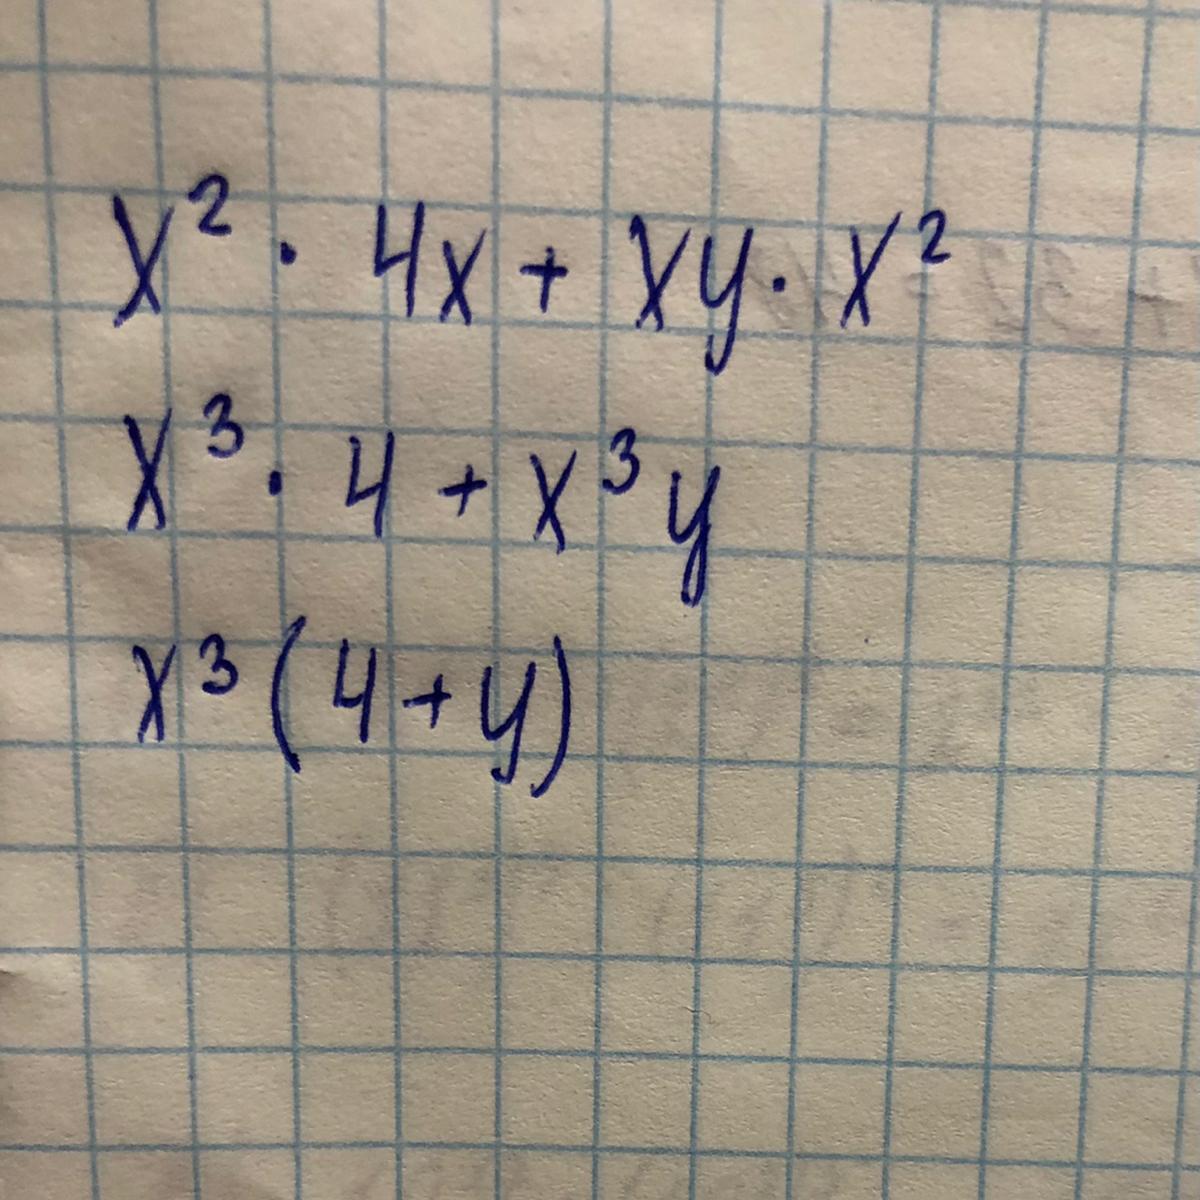 x² · 4x + xy · x²
x³ · 4 + x³y
x³(4+y)